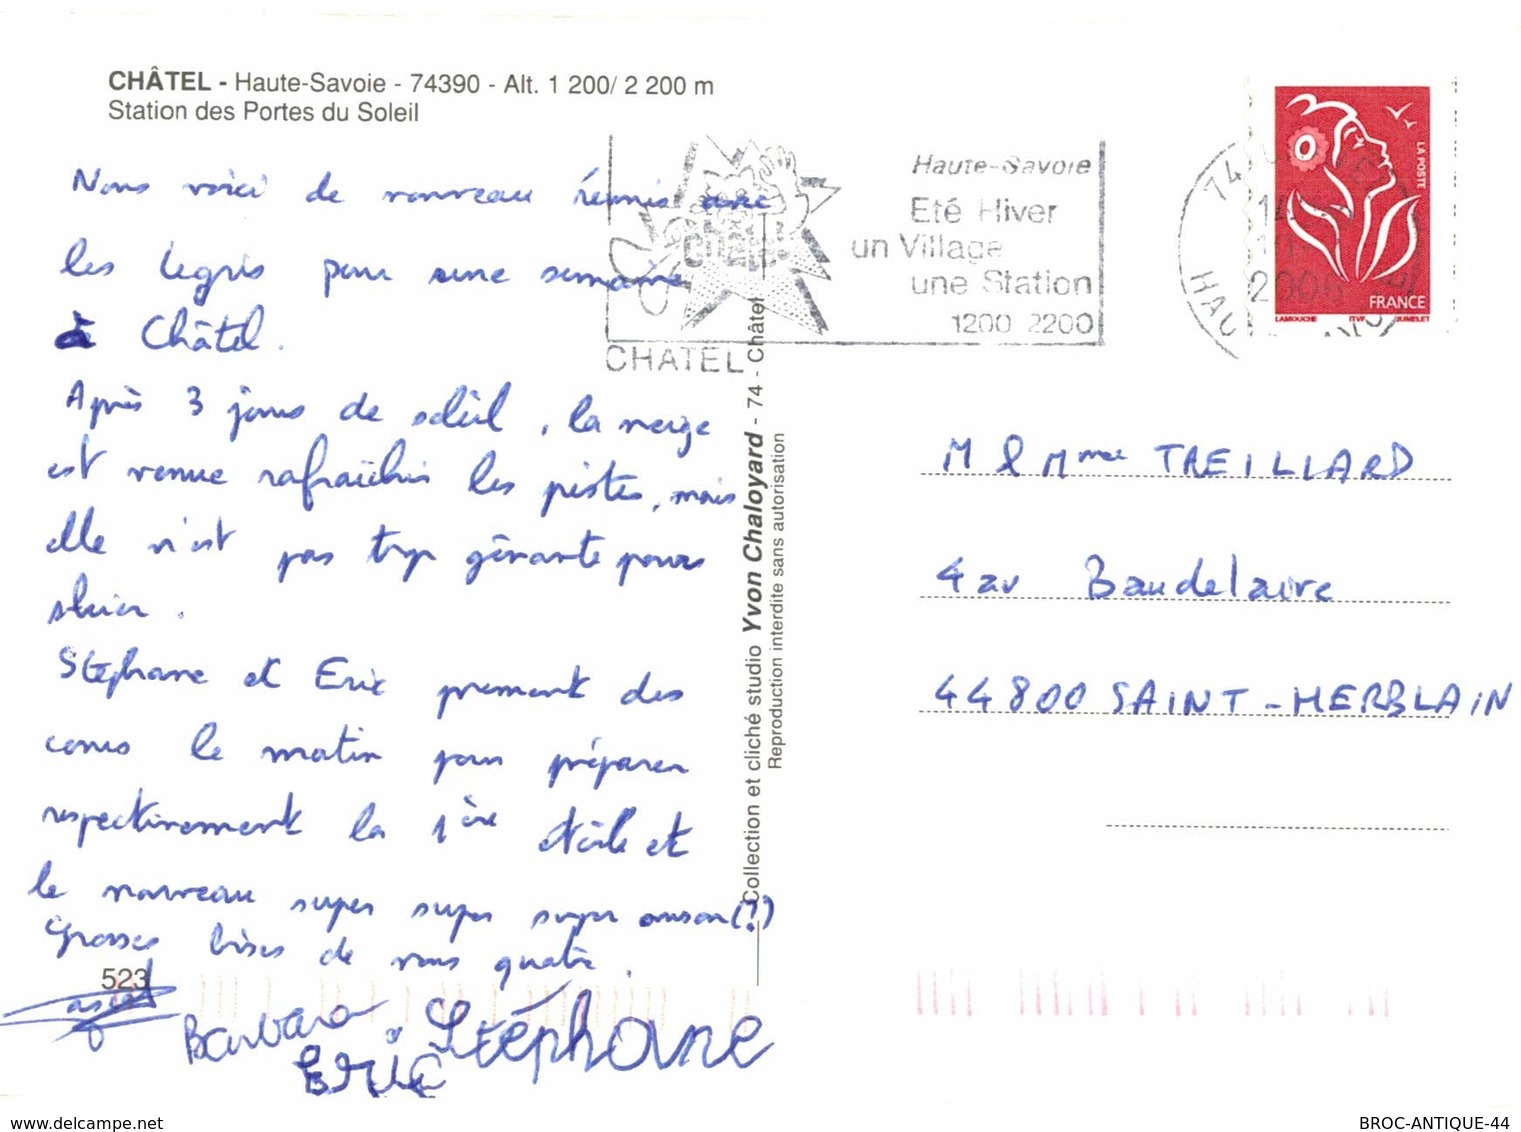 CHÂTEL - Haute-Savoie - 74390 - Alt. 1 200/ 2 200 m
Station des Portes du Soleil
Nous voici de nouveau réunis avec
les Legris pour une semaine
à Châtel.
Après 3 jours de soleil, la neige
est venue rafraîchir les pistes, mais
elle n'est pas trop gênante pour
skier.
Stéphane et Eric prennent des
cours le matin pour préparer
respectivement la 1ère étoile et
le nouveau super super super ourson (?)
Grosses bises de nous quatre.
523
Barbara
Eric
Stéphane
Collection et cliché studio Yvon Chaloyard - 74 - Châtel
Reproduction interdite sans autorisation
Châtel
CHATEL
Haute-Savoie
Eté Hiver
un Village
une Station
1200 2200
74
2006
LA POSTE
FRANCE
LAMOUCHE ITVF JUMELET
M & Mme TREILLARD
4 av Baudelaire
44800 SAINT-HERBLAIN
www.delcampe.net
BROC-ANTIQUE-44